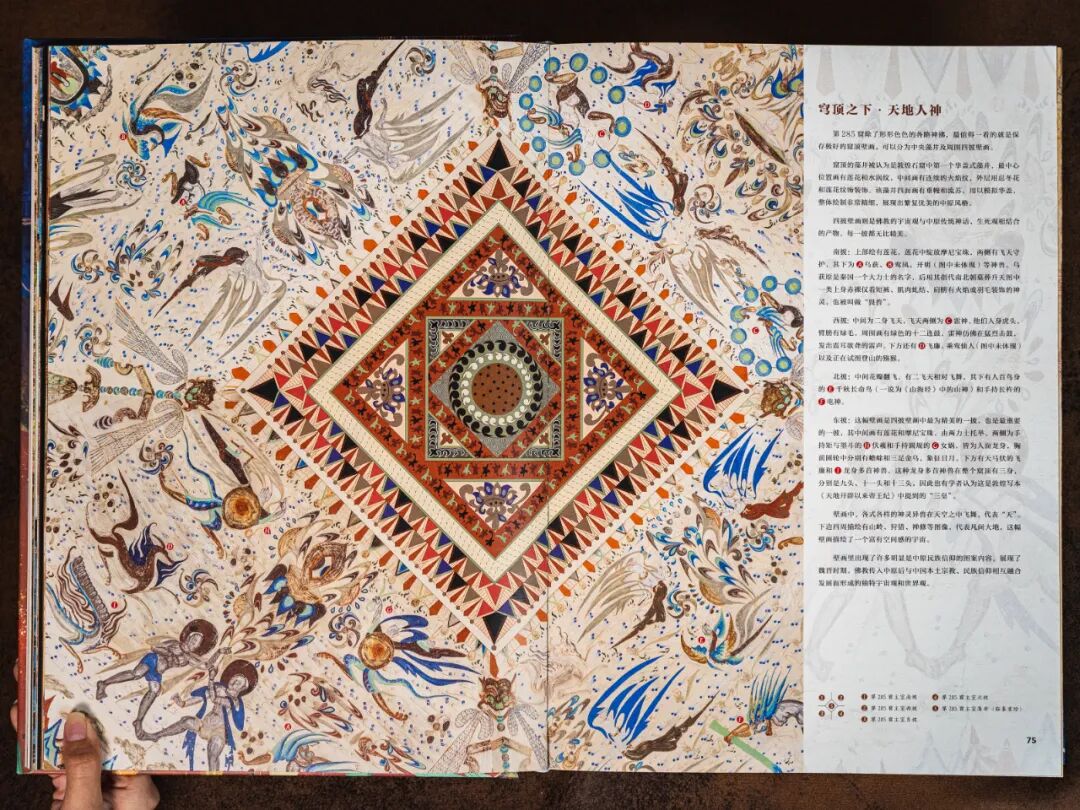 穹顶之下·天地人神
第 285 窟除了形形色色的各路神佛，最值得一看的就是保
存极好的窟顶壁画，可以分为中央藻井及周围四披壁画。
窟顶的藻井被认为是敦煌石窟中第一个华盖式藻井，最中心
位置画有莲花和水涡纹，中间画有连续的火焰纹，外层用忍冬花
和莲花纹饰装饰。该藻井四面画有垂幔和流苏，用以模拟华盖，
整体绘制非常精细，展现出繁复优美的中原风格。
四披壁画则是佛教的宇宙观与中原传统神话、生死观相结合
的产物，每一披都无比精美。
南披：上部绘有莲花，莲花中绽放摩尼宝珠，两侧有飞天守
护，其下为 A 乌获、开明（图中未体现）等神兽。乌
获原是秦国一个大力士的名字，后用其指代南北朝墓葬升天图中
一类上身赤裸仅着短裤、肌肉虬结、肩膀有火焰或羽毛装饰的神
灵，也被叫做“畏兽”。
西披：中间为二身飞天，飞天两侧为 C 雷神，他们人身虎头，
臂膀有绿毛，周围画有绿色的十二连鼓，雷神仿佛在猛烈击鼓，
发出震耳欲聋的雷声。下方还有 D 飞廉、乘鸾仙人（图中未体现）
以及正在试图登山的猕猴。
北披：中间花瓣翻飞，有二飞天相对飞舞，其下有人首鸟身
的 E 千秋长命鸟（一说为《山海经》中的山神）和手持长杵的
F 电神。
东披：这幅壁画是四披壁画中最为精美的一披，也是最重要
的一披，其中间画有莲花和摩尼宝珠，由两力士托举，两侧为手
持矩与墨斗的 H 伏羲和手持圆规的 G 女娲，皆为人面龙身，胸
前圆轮中分别有蟾蜍和三足金乌，象征日月。下方有天马状的飞
廉和 I 龙身多首神兽，这种龙身多首神兽在整个窟顶有三身，
分别是九头、十一头和十三头，因此也有学者认为这是敦煌写本
《天地开辟以来帝王纪》中提到的“三皇”。
壁画中，各式各样的神灵异兽在天空之中飞舞，代表“天”，
下边四周描绘有山岭、狩猎、禅修等图像，代表凡间大地，这幅
壁画描绘了一个富有空间感的宇宙。
壁画里出现了许多明显是中原民族信仰的图案内容，展现了
魏晋时期，佛教传入中原后与中国本土宗教、民族信仰相互融合
发展而形成的独特宇宙观和世界观。
1 第 285 窟主室南披
2 第 285 窟主室西披
3 第 285 窟主室东披
4 第 285 窟主室北披
5 第 285 窟主室藻井
75